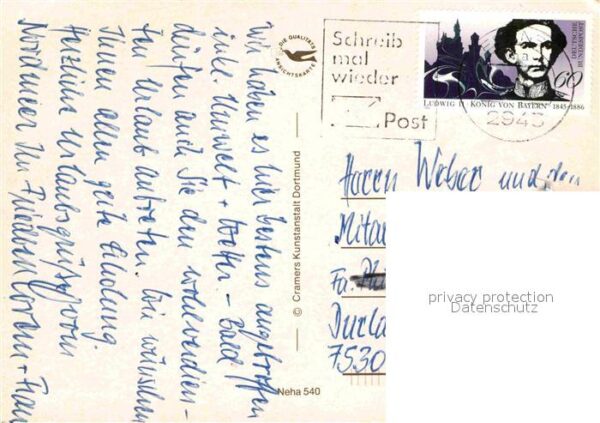 Wir haben es hier bestens angetroffen
incl. Umwelt + Wetter. – Bald
dürfen auch Sie den wohlverdien-
ten Urlaub antreten. Wir wünschen
Ihnen allen gute Erholung
Herzliche Urlaubsgrüße vom
Nordmeer Ihr + Frau
DIE QUALITÄTS
ANSICHTSKARTE
© Cramers Kunstanstalt Dortmund
Neha 540
Schreib
mal
wieder
Post
DEUTSCHE
BUNDESPOST
60
LUDWIG II. KÖNIG VON BAYERN 1845-1886
2945
Herrn Weber und den
Fa.
7530
privacy protection
Datenschutz